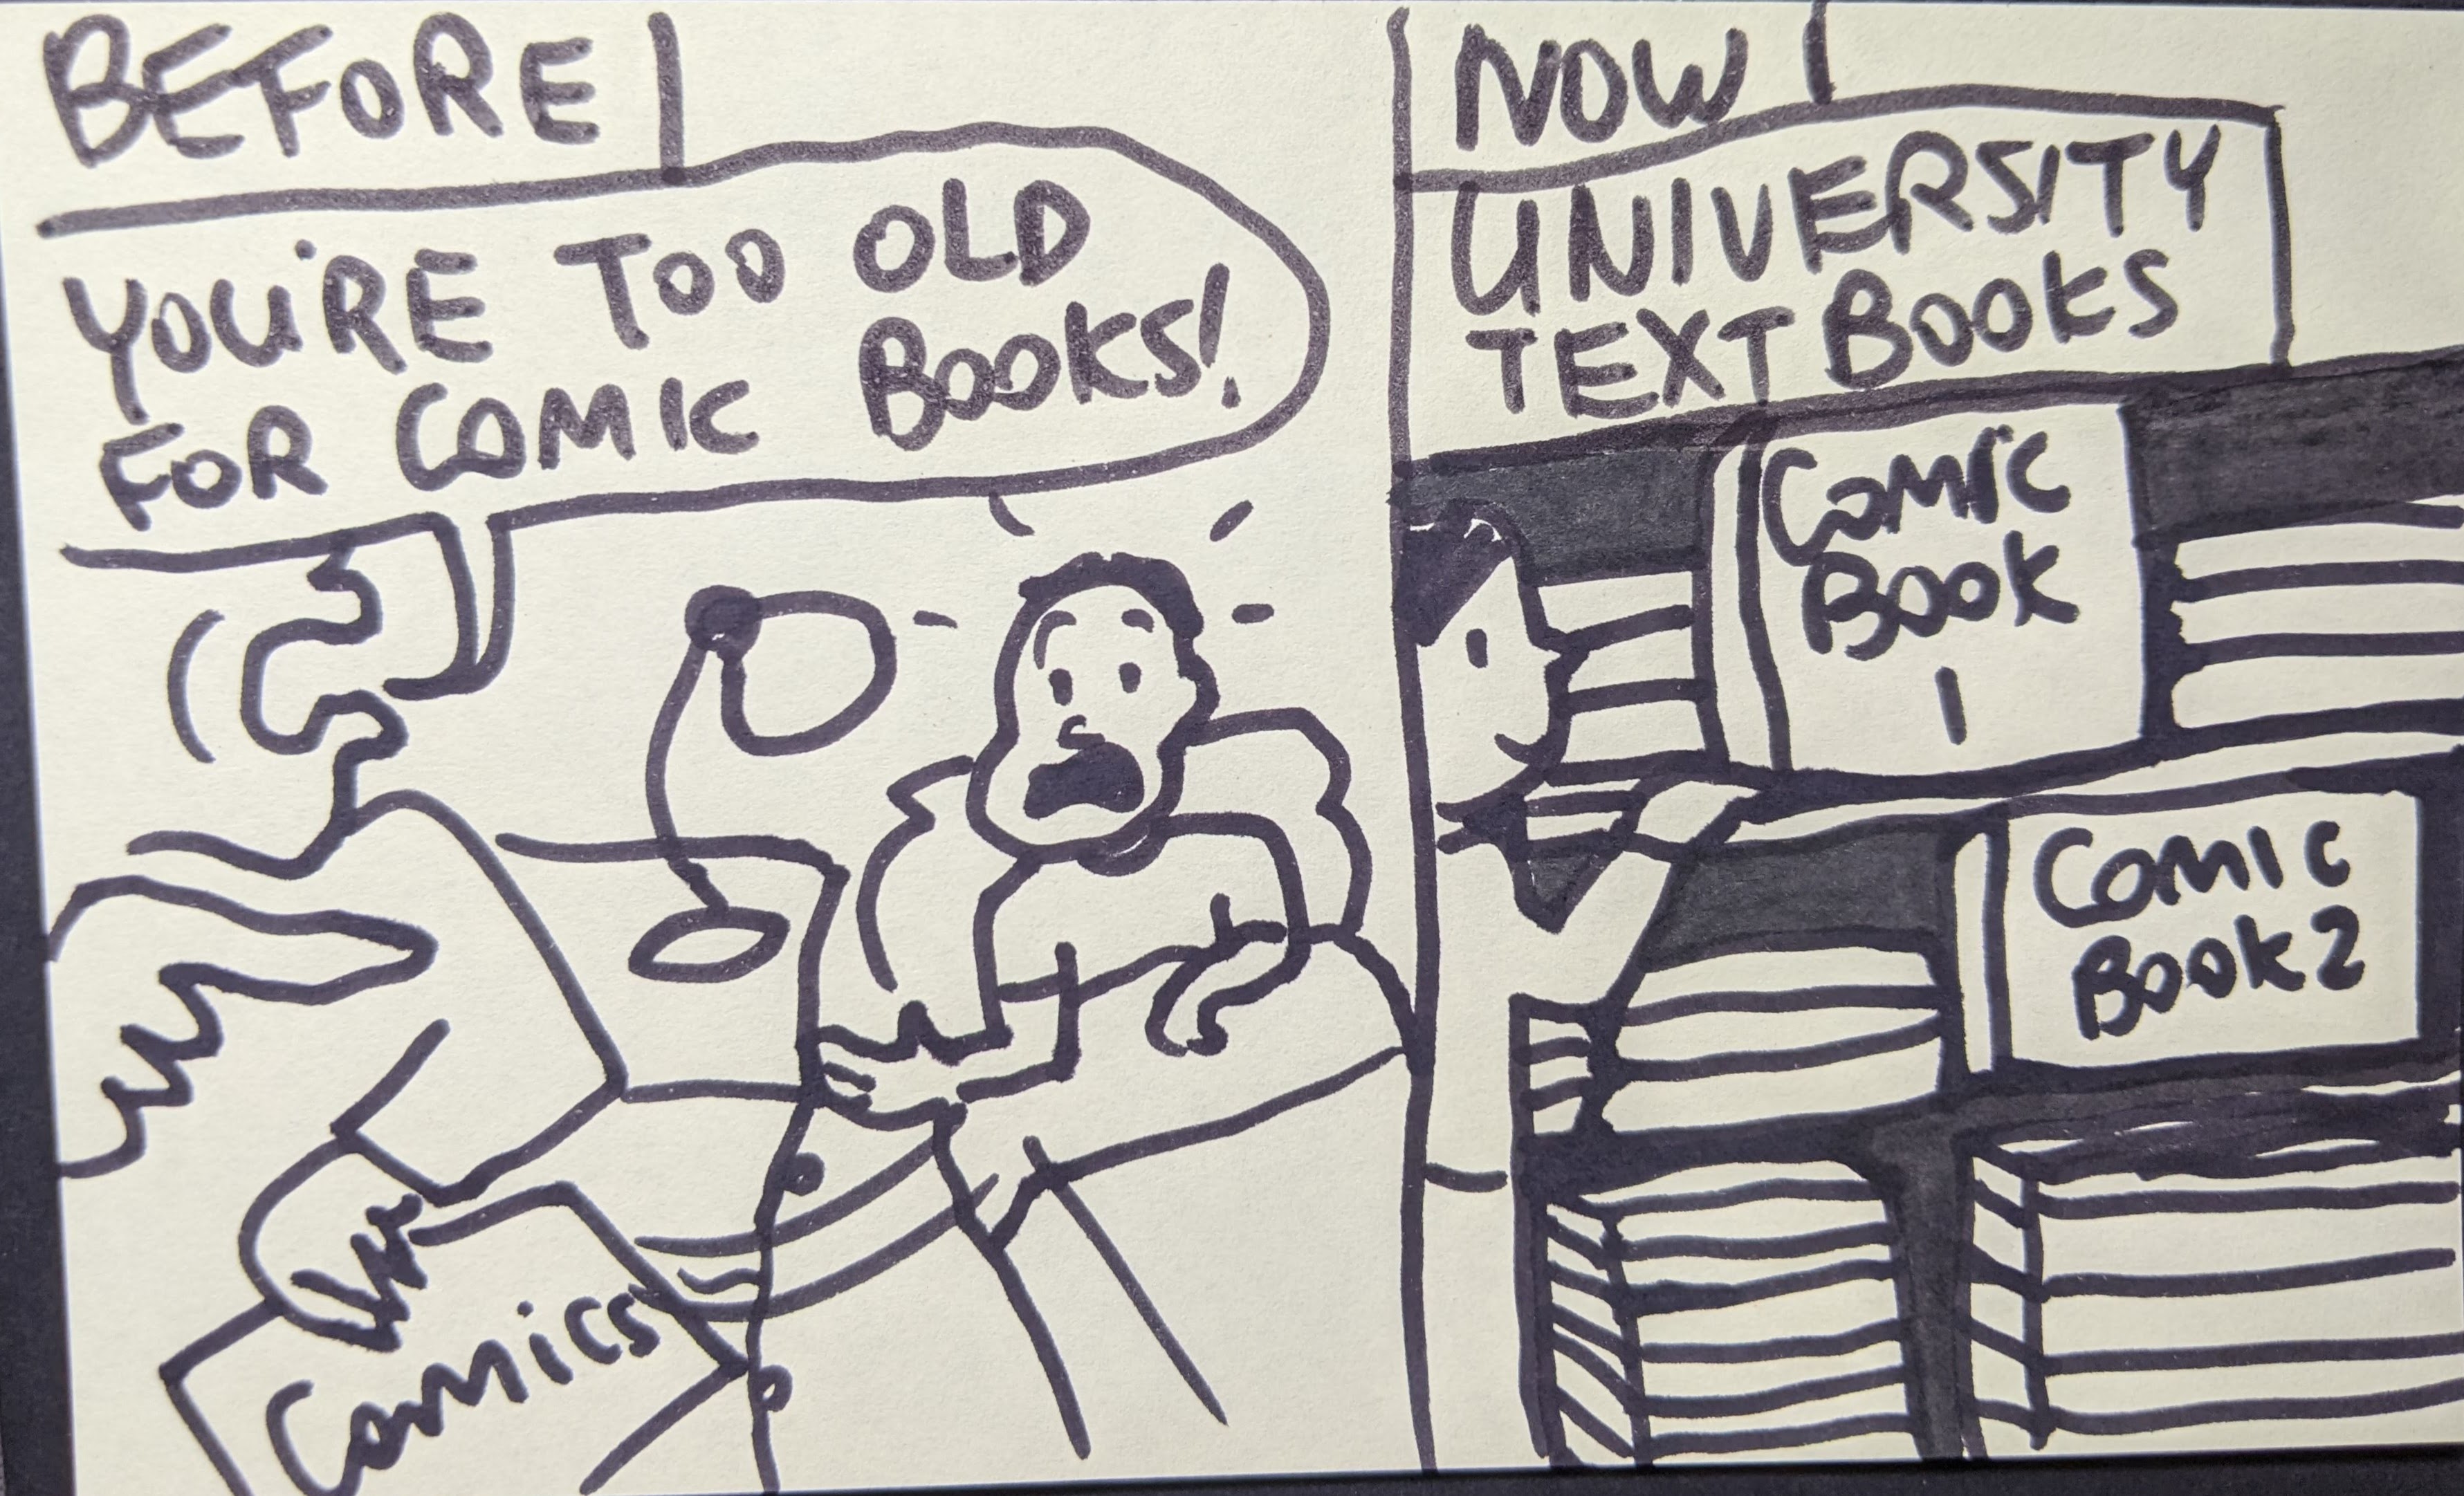 BEFORE
YOU'RE TOO OLD
FOR COMIC BOOKS!
COMICS
NOW
UNIVERSITY
TEXT BOOKS
COMIC
BOOK
1
COMIC
BOOK 2